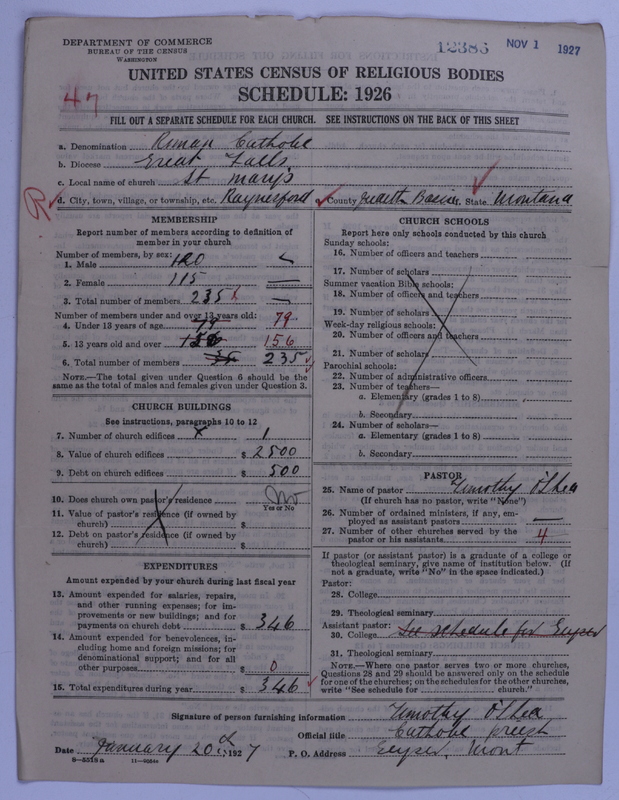 DEPARTMENT OF COMMERCE
BUREAU OF THE CENSUS
WASHINGTON
12386 NOV 1 1927
UNITED STATES CENSUS OF RELIGIOUS BODIES
SCHEDULE: 1926
47
FILL OUT A SEPARATE SCHEDULE FOR EACH CHURCH. SEE INSTRUCTIONS ON THE BACK OF THIS SHEET
a. Denomination Roman Catholic
b. Diocese Great Falls
c. Local name of church St Mary's
R d. City, town, village, or township, etc. Raynesford County Judith Basin State Montana
MEMBERSHIP
Report number of members according to definition of
member in your church
Number of members, by sex:
1. Male 120
2. Female 115
3. Total number of members 235
Number of members under and over 13 years old:
4. Under 13 years of age 79 79
5. 13 years old and over 156 156
6. Total number of members 235
NOTE.—The total given under Question 6 should be the
same as the total of males and females given under Question 3.
CHURCH BUILDINGS
See instructions, paragraphs 10 to 12
7. Number of church edifices 1
8. Value of church edifices $ 2500
9. Debt on church edifices $ 500
10. Does church own pastor's residence No
Yes or No
11. Value of pastor's residence (if owned by
church) $
12. Debt on pastor's residence (if owned by
church) $
EXPENDITURES
Amount expended by your church during last fiscal year
13. Amount expended for salaries, repairs,
and other running expenses; for im-
provements or new buildings; and for
payments on church debt $ 346
14. Amount expended for benevolences, in-
cluding home and foreign missions; for
denominational support; and for all
other purposes $ 0
15. Total expenditures during year $ 346
CHURCH SCHOOLS
Report here only schools conducted by this church
Sunday schools:
16. Number of officers and teachers
17. Number of scholars
Summer vacation Bible schools:
18. Number of officers and teachers
19. Number of scholars
Week-day religious schools:
20. Number of officers and teachers
21. Number of scholars
Parochial schools:
22. Number of administrative officers
23. Number of teachers—
a. Elementary (grades 1 to 8)
b. Secondary
24. Number of scholars—
a. Elementary (grades 1 to 8)
b. Secondary
PASTOR
25. Name of pastor Timothy O'Shea
(If church has no pastor, write "None")
26. Number of ordained ministers, if any, em-
ployed as assistant pastors
27. Number of other churches served by the
pastor or his assistants 4
If pastor (or assistant pastor) is a graduate of a college or
theological seminary, give name of institution below. (If
not a graduate, write "No" in the space indicated.)
Pastor:
28. College
29. Theological seminary
Assistant pastor:
30. College See schedule for Geyser
31. Theological seminary
NOTE.—Where one pastor serves two or more churches,
Questions 28 and 29 should be answered only on the schedule
for one of the churches; on the schedules for the other churches,
write "See schedule for church."
Signature of person furnishing information Timothy O'Shea
Official title Catholic Priest
Date January 20th, 1927 P. O. Address Geyser, Mont
8—5518 a